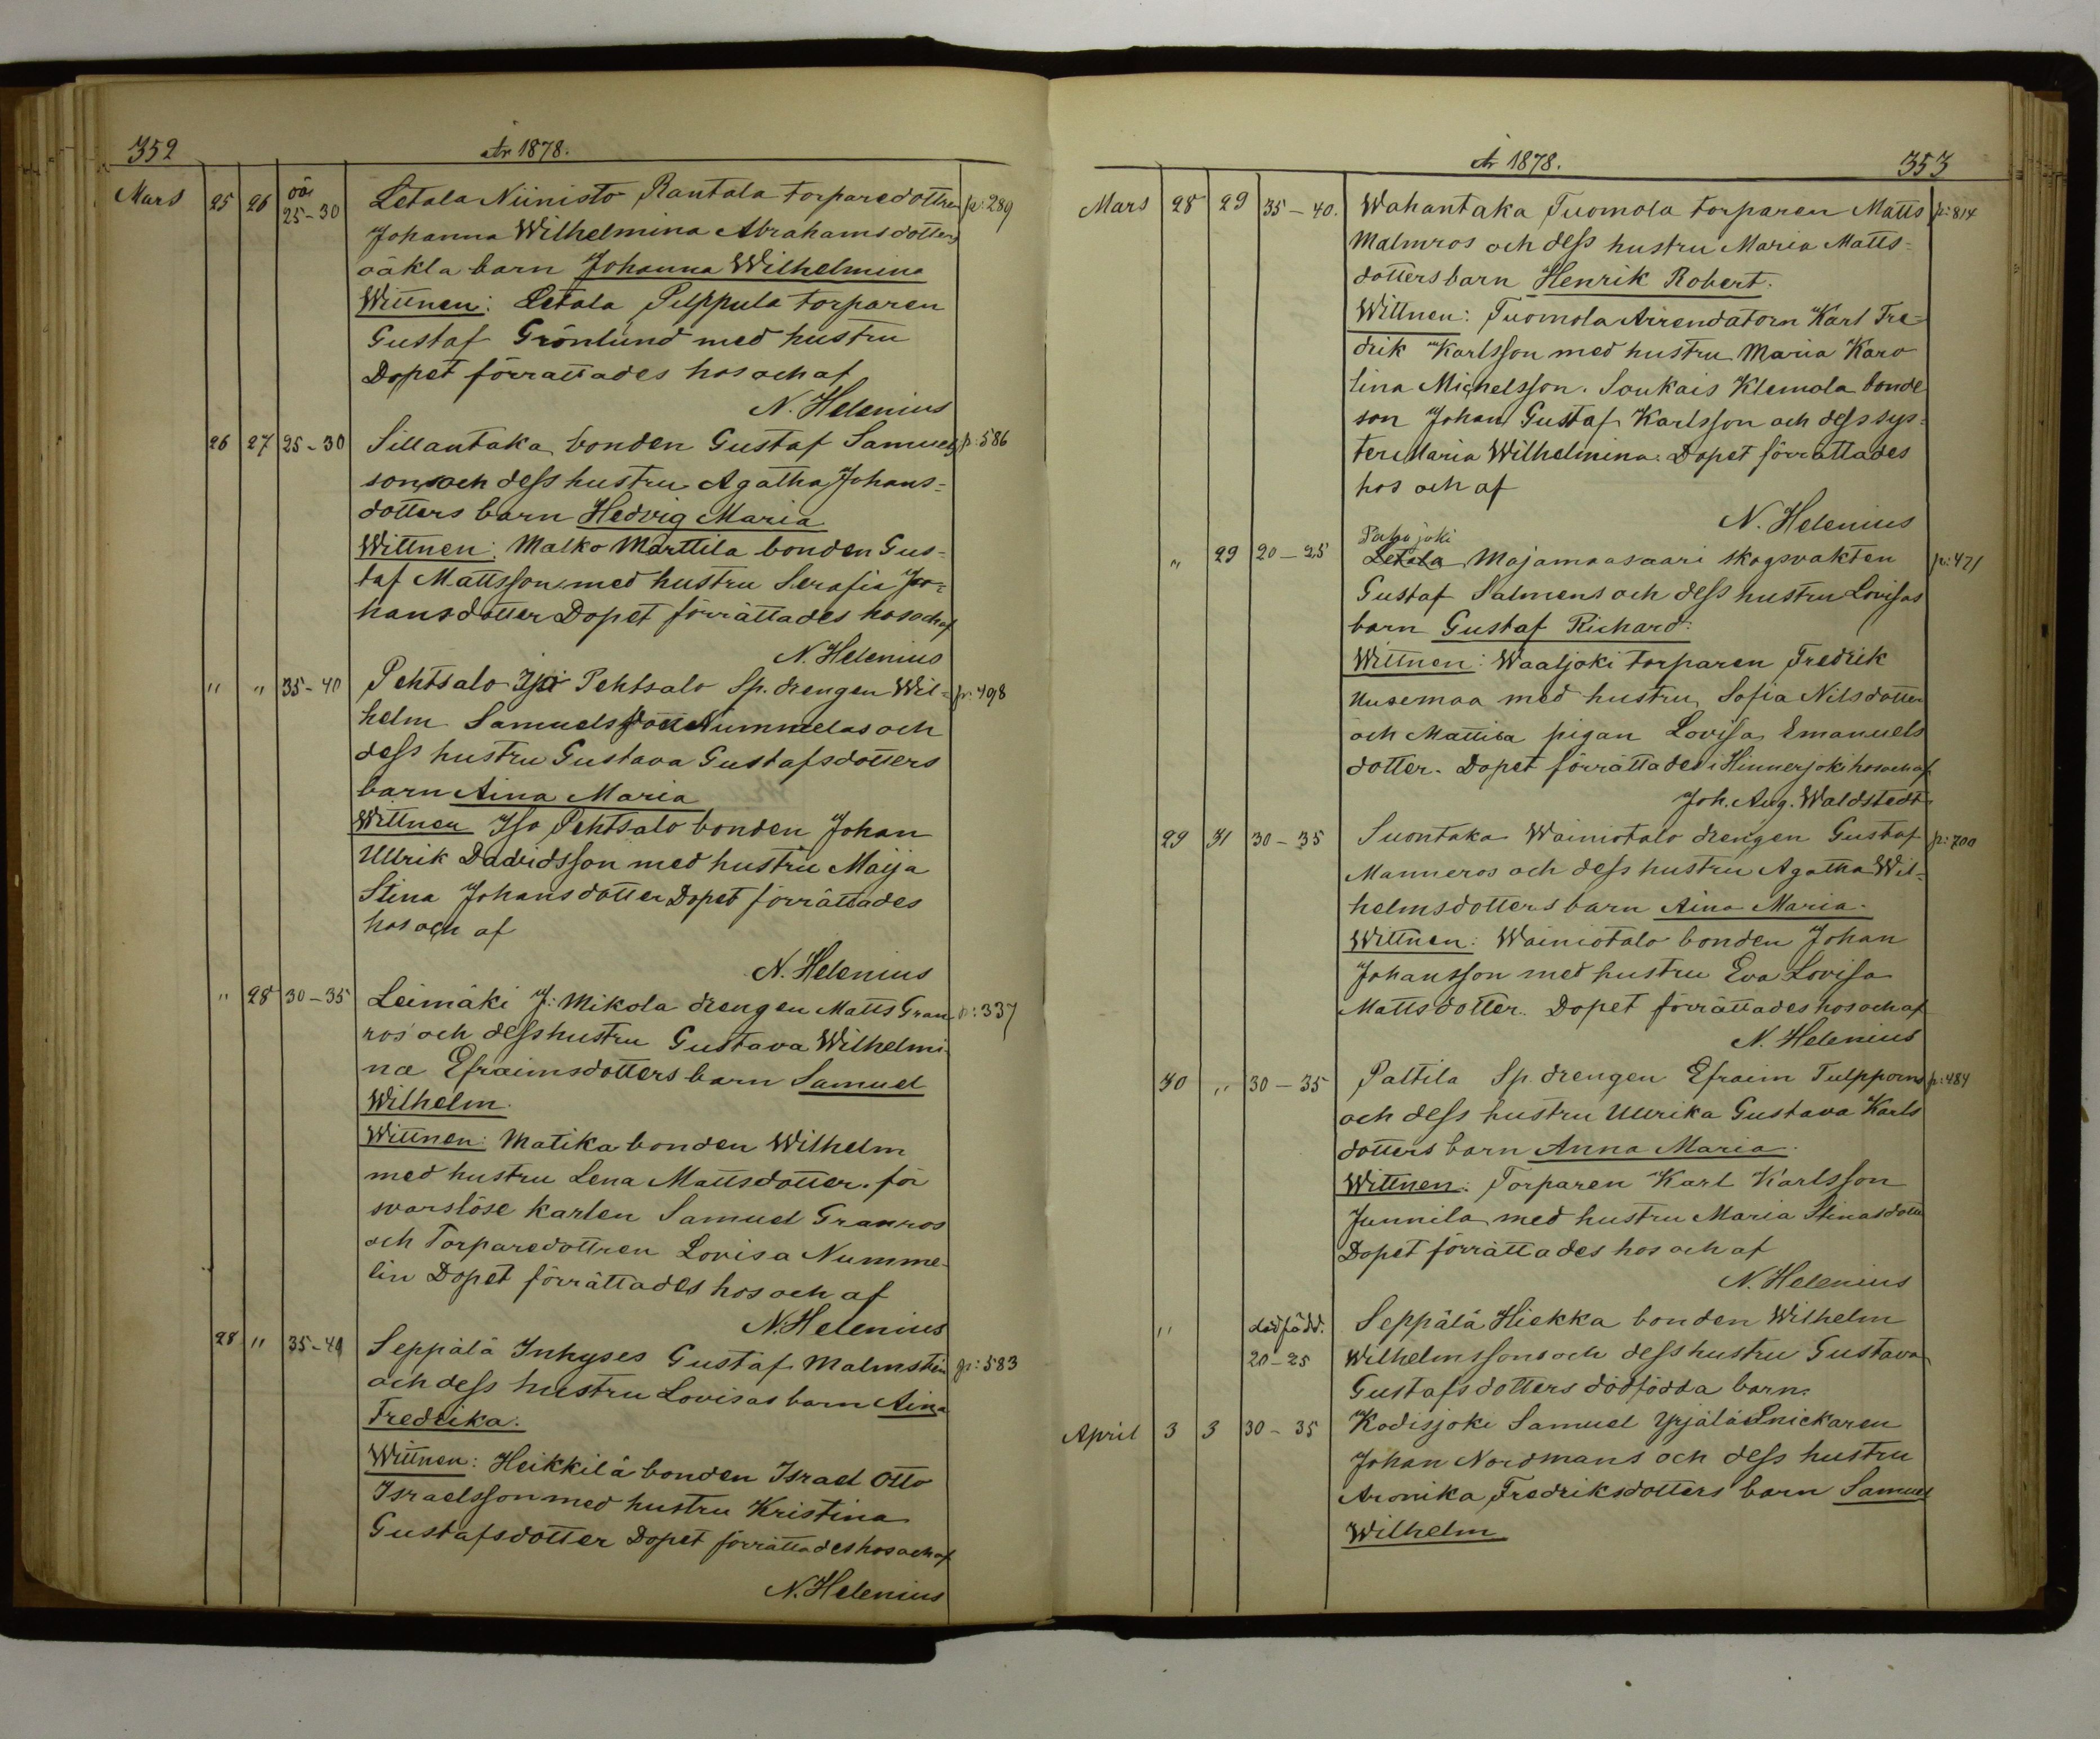 352
År 1878.
Mars 25 26 oä 25-30 Letala Niinisto Rantala torparedottren p: 289
Johanna Wilhelmina Abrahamsdotters
oäkta barn Johanna Wilhelmina
Wittnen: Letala Pelppula torparen
Gustaf Grönlund med hustru
Dopet förrättades hos och af
N. Helenius
26 27 25-30 Sillantaka bonden Gustaf Samuels p: 586
sons och dess hustru Agatha Johans-
dotters barn Hedvig Maria
Wittnen: Malko Marttila bonden Gus-
taf Mattsson med hustru Serafia Jo-
hansdotter Dopet förrättades hos och af
N. Helenius
" " 35-40 Pehtsalo Iso Pehtsalo Sp. drengen Wil- p: 498
helm Samuels Nummelas och
dess hustru Gustava Gustafsdotters
barn Aina Maria
Wittnen Iso Pehtsalo bonden Johan
Ullrik Davidsson med hustru Maija
Stina Johansdotter Dopet förrättades
hos och af
N. Helenius
" 28 30-35 Leimäki J: Mikola drengen Matts Gran p: 337
ros och dess hustru Gustava Wilhelmi-
na Efraimsdotters barn Samuel
Wilhelm.
Wittnen: Matika bonden Wilhelm
med hustru Lena Mattsdotter. för
svarslöse karlen Samuel Granros
och Torparedottren Lovisa Numme-
lin Dopet förrättades hos och af
N. Helenius
28 " 35-40 Seppälä Inhyses Gustaf Malmstén p: 583
och dess hustru Lovisas barn Aina
Fredrika.
Wittnen: Heikkilä bonden Israel Otto
Israelsson med hustru Kristina
Gustafsdotter Dopet förrättades hos och af
N. Helenius
År 1878.
353
Mars 28 29 35-40. Wahantaka Tuomola torparen Matts p: 814
Malmros och dess hustru Maria Matts-
dotters barn Henrik Robert.
Wittnen: Tuomola Arrendatorn Karl Fre-
drik Karlsson med hustru Maria Karo
lina Michelsson. Soukais Klemola bonde
son Johan Gustaf Karlsson och dess sys-
ter Maria Wilhelmina. Dopet förrättades
hos och af
N. Helenius
Pahojoki
" 29 20-25 Letala Majamaasaari skogsvakten p: 471
Gustaf Salmens och dess hustru Lovisas
barn Gustaf Richard:
Wittnen: Waaljoki torparen Fredrik
Uusemaa med hustru Sofia Nilsdotter
och Mattila pigan Lovisa Emanuels
dotter. Dopet förrättades i Hinnerjoki hos och af
Joh. Aug. Waldstedt
29 31 30-35 Suontaka Wainiotalo drengen Gustaf p: 700
Manneros och dess hustru Agatha Wil-
helmsdotters barn Aina Maria.
Wittnen: Wainiotalo bonden Johan
Johansson med hustru Eva Lovisa
Mattsdotter. Dopet förrättades hos och af
N. Helenius
30 " 30-35 Pattila Sp. drengen Efraim Tulppoms p: 484
och dess hustru Ulrika Gustava Karls
dotters barn Anna Maria.
Wittnen: Torparen Karl Karlsson
Junnila med hustru Maria Stinasdotter
Dopet förrättades hos och af
N. Helenius
" dödfödd. Seppälä Hiekka bonden Wilhelm
20-25 Wilhelmssons och dess hustru Gustava
Gustafsdotters dödfödda barn.
April 3 3 30-35 Kodisjoki Samuel Yrjälä Snickaren
Johan Nordmans och dess hustru
Aronika Fredriksdotters barn Samuel
Wilhelm